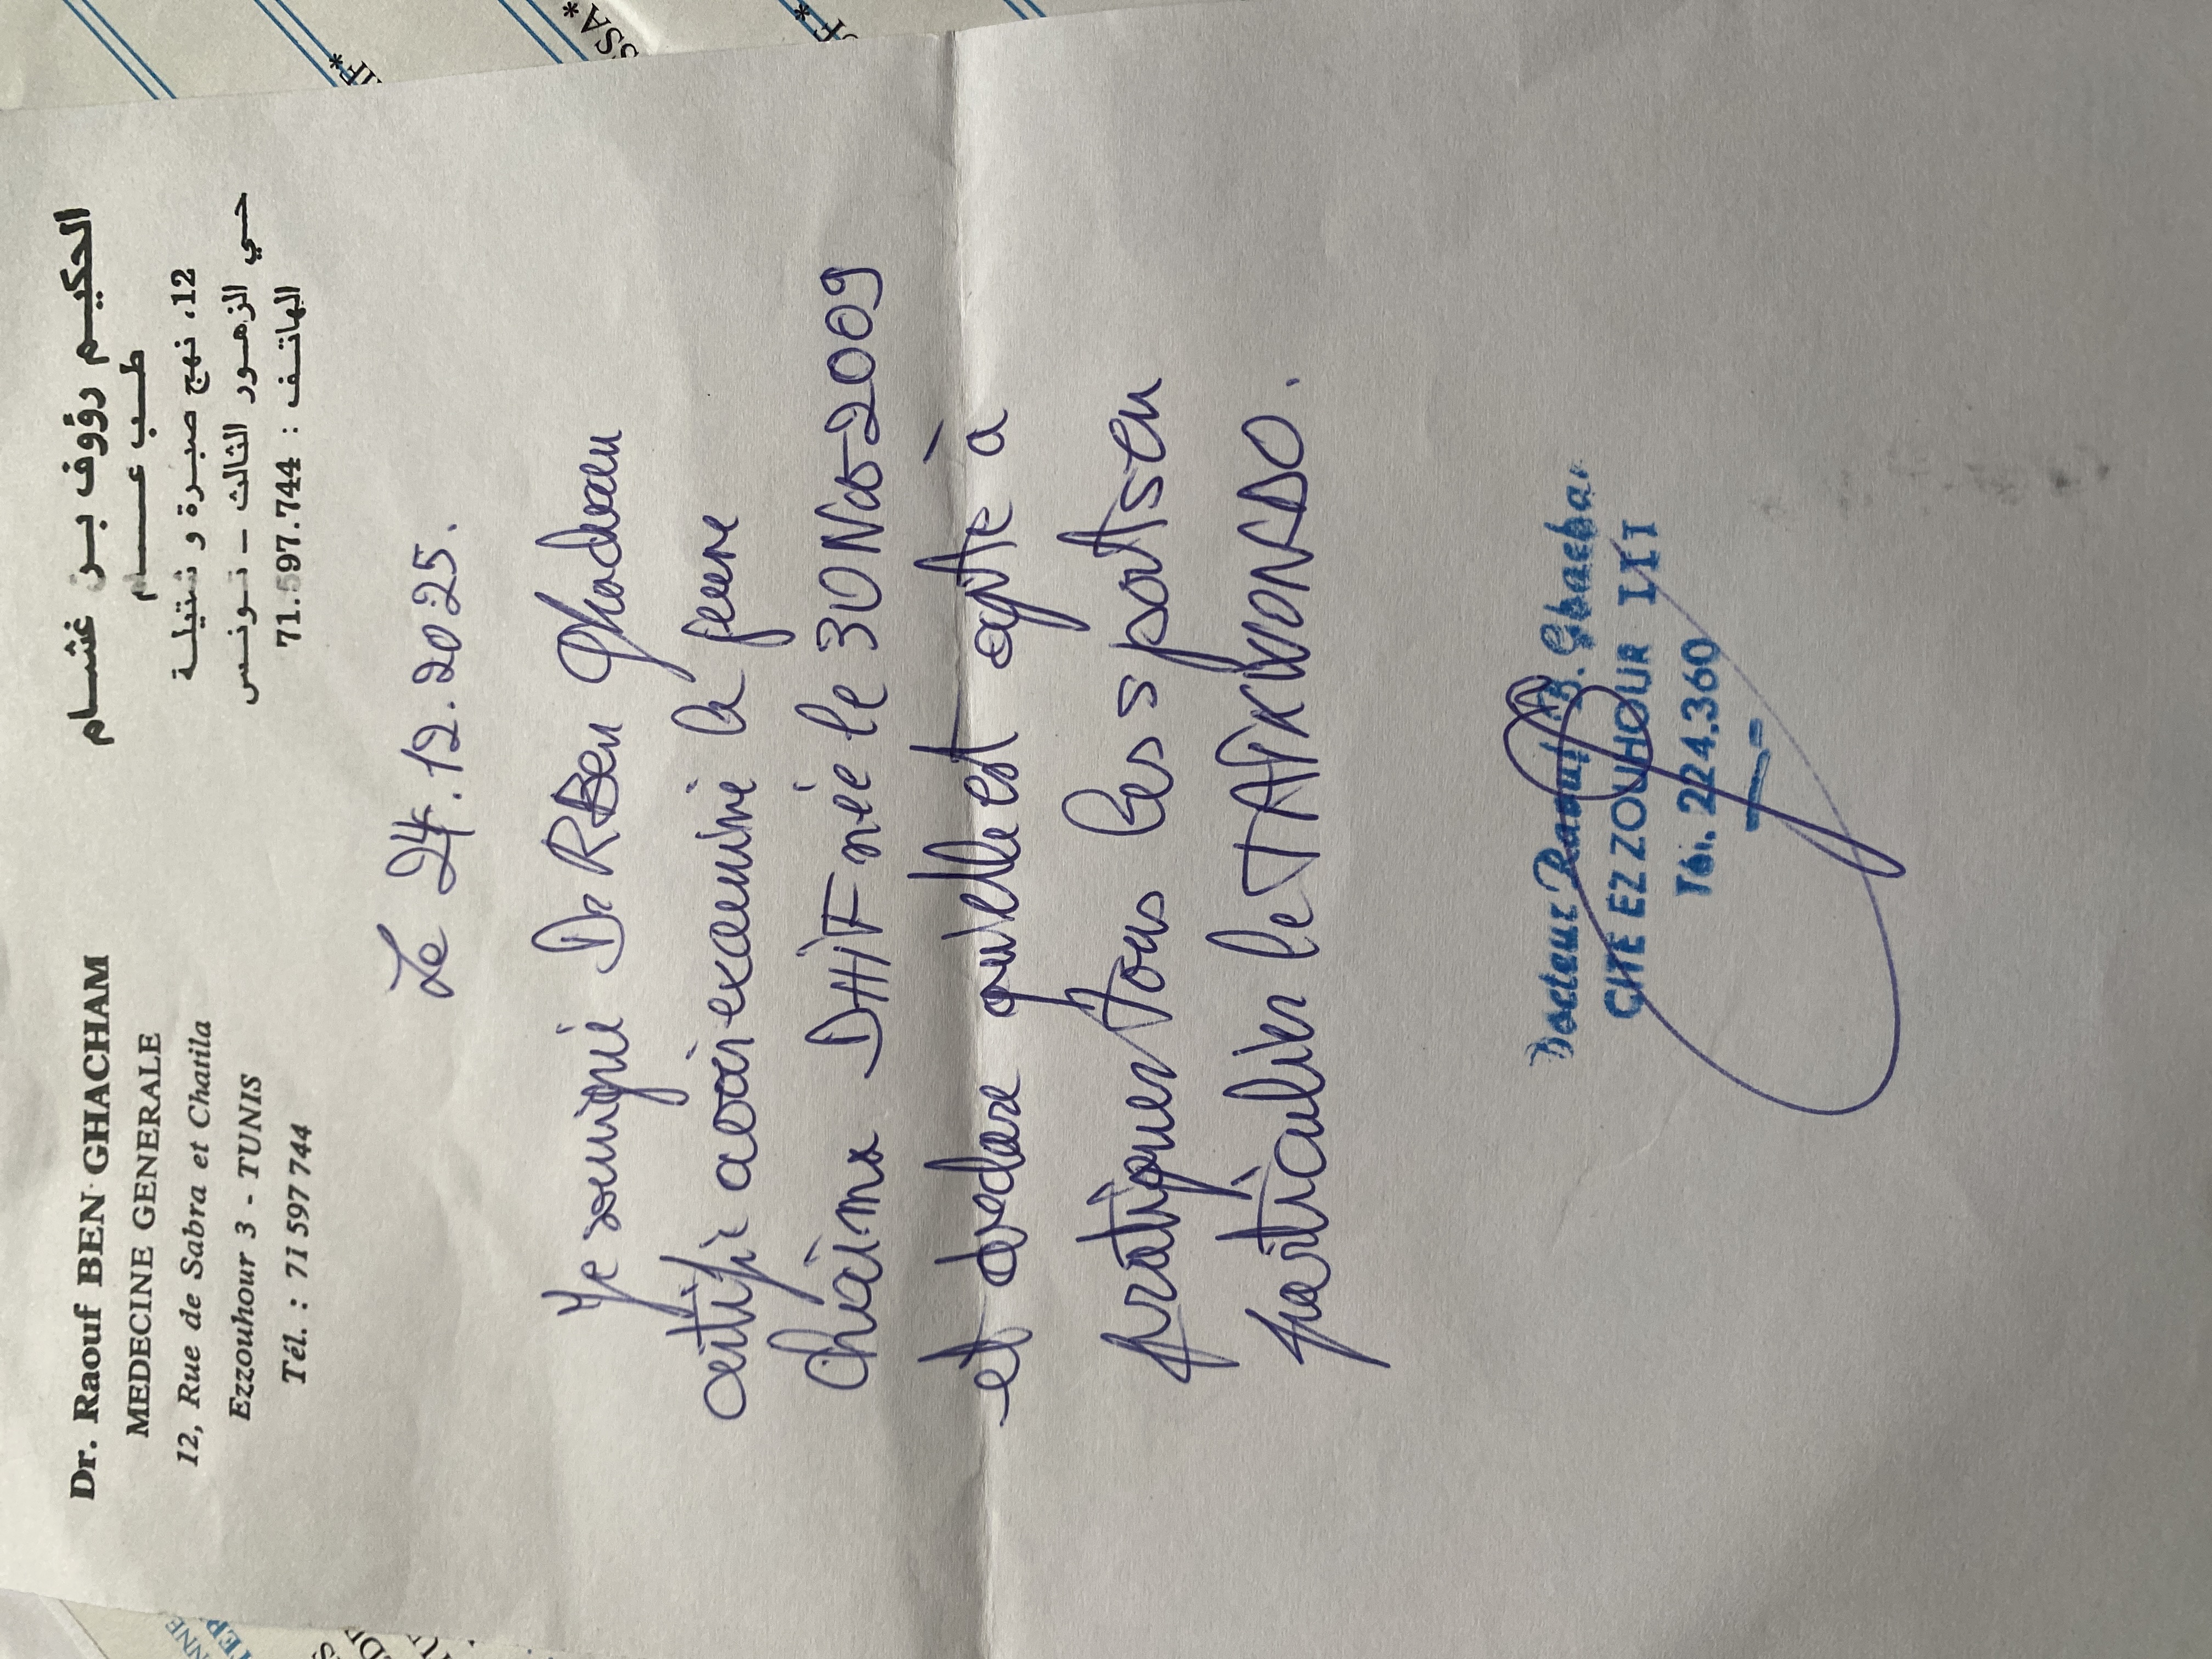 Dr. Raouf BEN GHACHAM
MEDECINE GENERALE
12, Rue de Sabra et Chatila
Ezzouhour 3 - TUNIS
Tél. : 71 597 744
الحكيم رؤوف بن غشام
طب عام
12، نهج صبرة و شتيلة
حي الزهور الثالث – تونس
الهاتف : 71.597.744
Le 24.12.2025.
Je soussigné Dr R Ben Ghacham
certifie avoir examiné la jeune
Chaima DHIF née le 30 Nov 2009
et declare qu'elle est apte à
pratiquer tous les sports en
particulier le TAEKWONDO.
Docteur Raouf B. Ghacham
CITE EZZOUHOUR III
Tél. 224.360